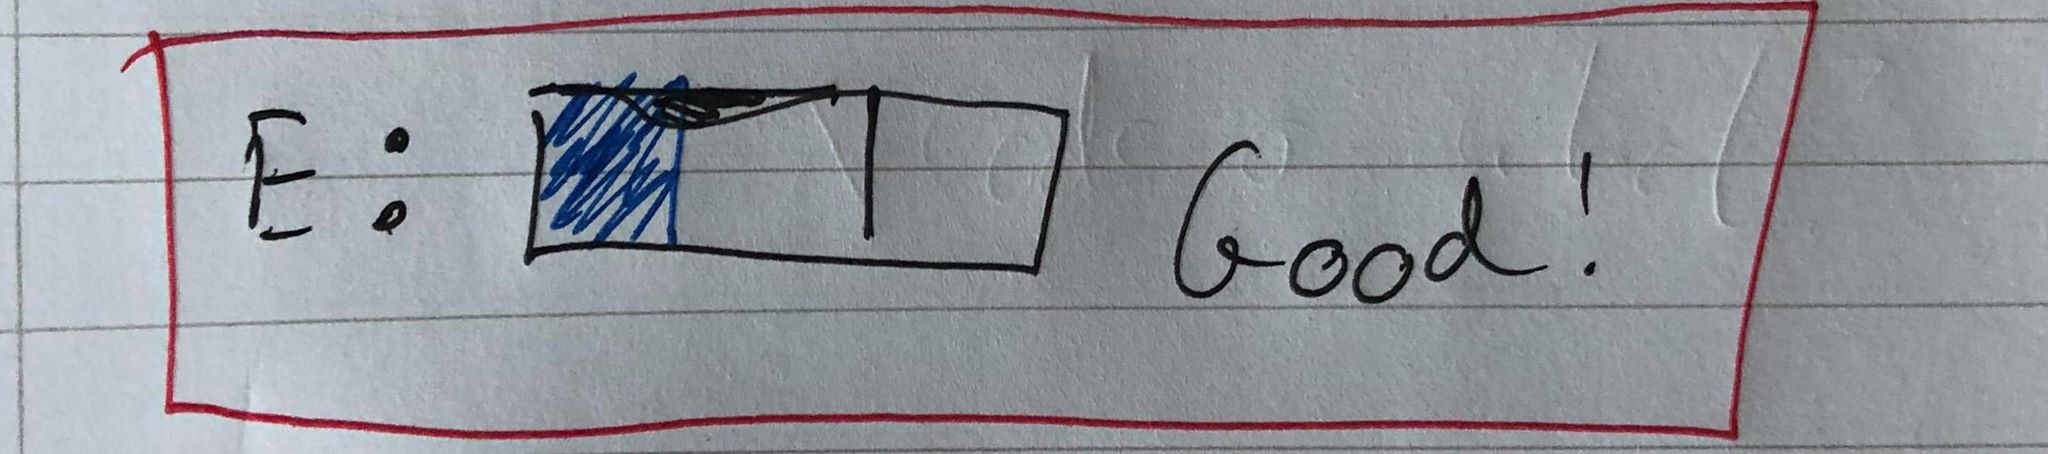 E: Good!